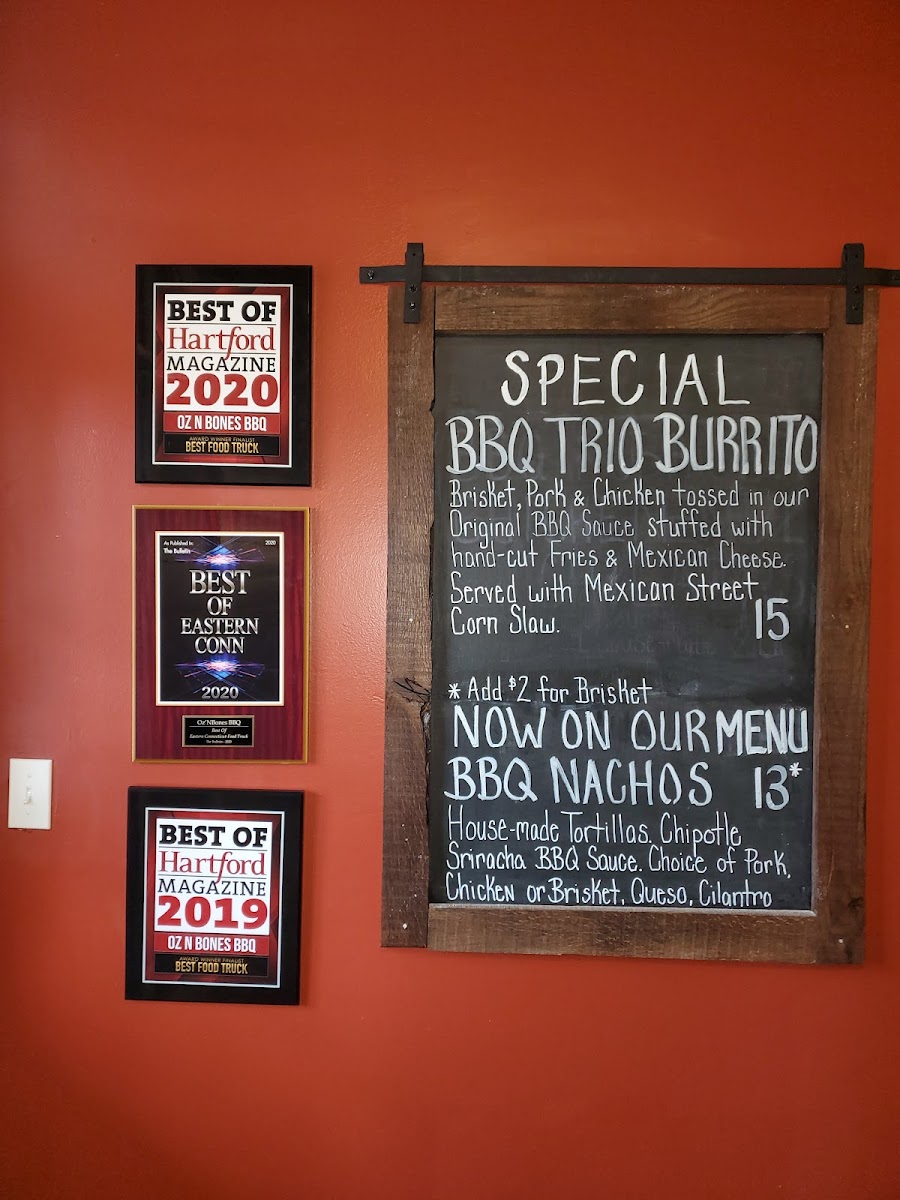 BEST OF
Hartford
MAGAZINE
2020
OZ N BONES BBQ
AWARD WINNER FINALIST
BEST FOOD TRUCK
As Published In:
The Bulletin
2020
BEST
OF
EASTERN
CONN
2020
Oz'NBones BBQ
Best Of
Eastern Connecticut Food Truck
The Bulletin - 2020
BEST OF
Hartford
MAGAZINE
2019
OZ N BONES BBQ
AWARD WINNER FINALIST
BEST FOOD TRUCK
SPECIAL
BBQ TRIO BURRITO
Brisket, Pork & Chicken tossed in our
Original BBQ Sauce stuffed with
hand-cut Fries & Mexican Cheese.
Served with Mexican Street
Corn Slaw. 15
* Add $2 for Brisket
NOW ON OUR MENU
BBQ NACHOS 13*
House-made Tortillas. Chipotle
Sriracha BBQ Sauce. Choice of Pork,
Chicken or Brisket, Queso, Cilantro